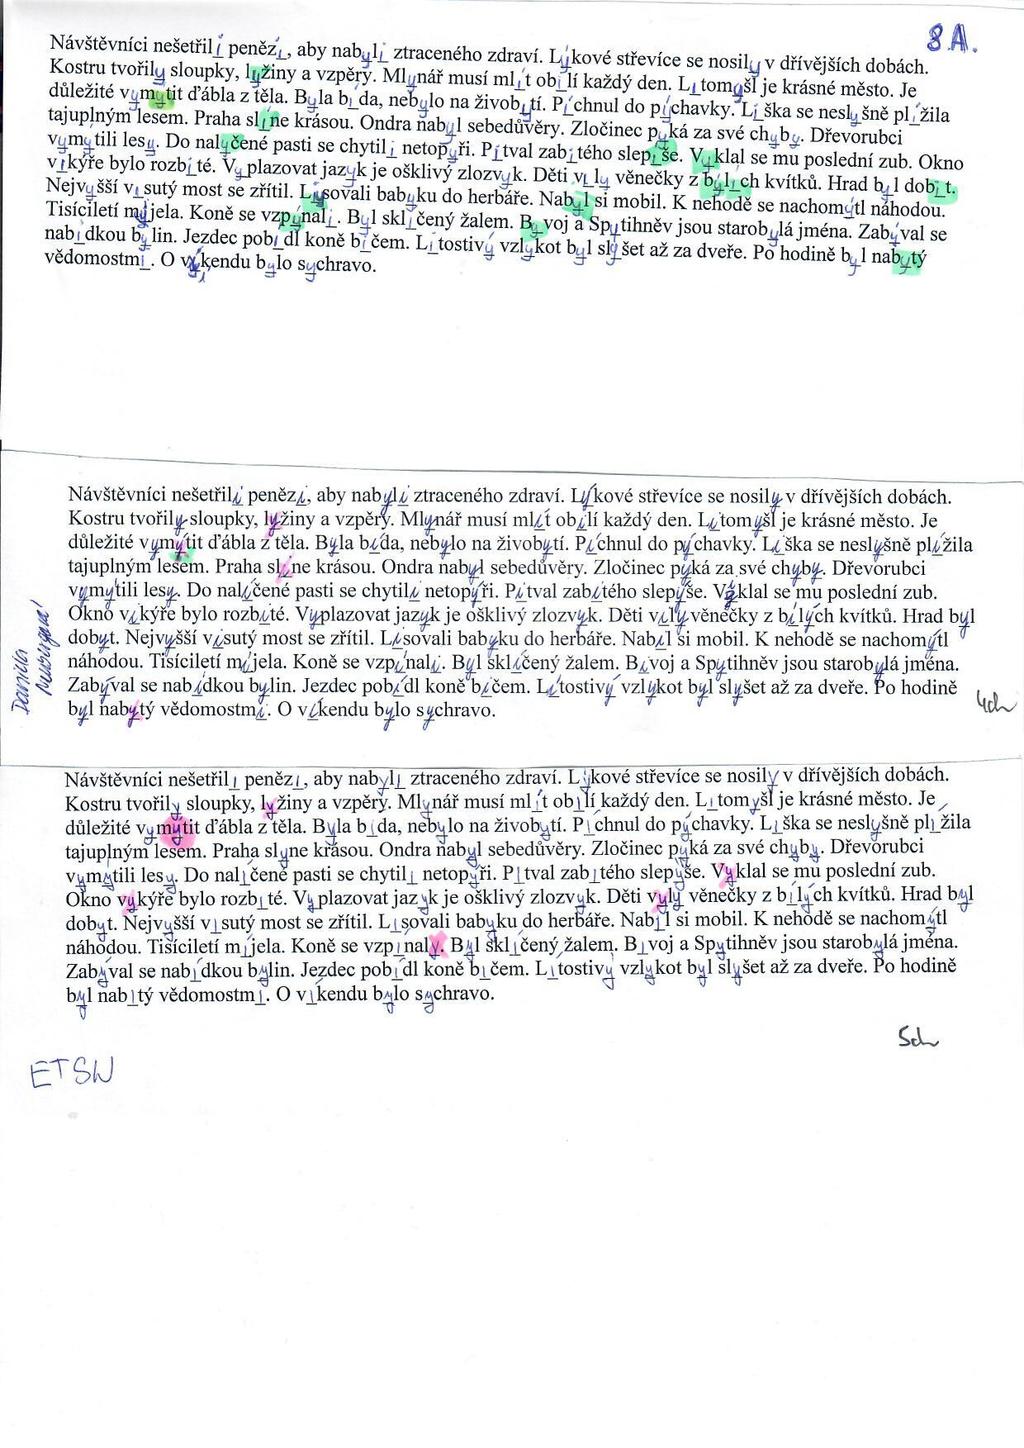 8.A.
Návštěvníci nešetřili penězi, aby nabyli ztraceného zdraví. Lýkové střevíce se nosily v dřívějších dobách.
Kostru tvořily sloupky, lyžiny a vzpěry. Mlynář musí mlít obilí každý den. Litomyšl je krásné město. Je
důležité vymytit ďábla z těla. Byla bída, nebylo na živobytí. Píchnul do píchavky. Liška se neslyšně plížila
tajuplným lesem. Praha slíne krásou. Ondra nabyl sebedůvěry. Zločinec pyká za své chyby. Dřevorubci
vymýtili lesy. Do nalyčené pasti se chytili netopýři. Pitval zabitého slepiše. Vyklal se mu poslední zub. Okno
vikýře bylo rozbité. Vyplazovat jazyk je ošklivý zlozvyk. Děti vily věnečky z bylích kvítků. Hrad byl dobit.
Nejvyšší visutý most se zřítil. Lisovali babyku do herbáře. Nabyl si mobil. K nehodě se nachomýtl náhodou.
Tisíciletí míjela. Koně se vzpynali. Byl sklíčený žalem. Byvoj a Spytihněv jsou starobylá jména. Zabýval se
nabídkou bylin. Jezdec pobídl koně bičem. Lítostivý vzlykot byl slyšet až za dveře. Po hodině byl nabytý
vědomostmi. O víkendu bylo sychravo.
Návštěvníci nešetřili penězi, aby nabyli ztraceného zdraví. Lýkové střevíce se nosily v dřívějších dobách.
Kostru tvořily sloupky, lyžiny a vzpěry. Mlynář musí mlít obilí každý den. Litomyšl je krásné město. Je
důležité vymýtit ďábla z těla. Byla bída, nebylo na živobytí. Píchnul do pýchavky. Liška se neslyšně plížila
tajuplným lesem. Praha slíne krásou. Ondra nabyl sebedůvěry. Zločinec pyká za své chyby. Dřevorubci
vymýtili lesy. Do nalíčené pasti se chytili netopýři. Pitval zabitého slepýše. Viklal se mu poslední zub.
Okno vikýře bylo rozbité. Vyplazovat jazyk je ošklivý zlozvyk. Děti vily věnečky z bílých kvítků. Hrad byl
dobyt. Nejvyšší visutý most se zřítil. Lisovali babyku do herbáře. Nabil si mobil. K nehodě se nachomýtl
náhodou. Tisíciletí míjela. Koně se vzpínali. Byl sklíčený žalem. Bivoj a Spytihněv jsou starobylá jména.
Zabýval se nabídkou bylin. Jezdec pobídl koně bičem. Lítostivý vzlykot byl slyšet až za dveře. Po hodině
byl nabytý vědomostmi. O víkendu bylo sychravo.
4ch
Návštěvníci nešetřili penězi, aby nabyli ztraceného zdraví. Lýkové střevíce se nosily v dřívějších dobách.
Kostru tvořily sloupky, lyžiny a vzpěry. Mlynář musí mlít obilí každý den. Litomyšl je krásné město. Je
důležité vymytit ďábla z těla. Byla bída, nebylo na živobytí. Píchnul do pýchavky. Liška se neslyšně plížila
tajuplným lesem. Praha slyne krásou. Ondra nabyl sebedůvěry. Zločinec pyká za své chyby. Dřevorubci
vymýtili lesy. Do nalíčené pasti se chytili netopýři. Pitval zabitého slepýše. Vyklal se mu poslední zub.
Okno vykýře bylo rozbité. Vyplazovat jazyk je ošklivý zlozvyk. Děti vyly věnečky z bílých kvítků. Hrad byl
dobyt. Nejvyšší visutý most se zřítil. Lisovali babyku do herbáře. Nabil si mobil. K nehodě se nachomýtl
náhodou. Tisíciletí míjela. Koně se vzpínaly. Byl sklíčený žalem. Bivoj a Spytihněv jsou starobylá jména.
Zabýval se nabídkou bylin. Jezdec pobídl koně bičem. Lítostivý vzlykot byl slyšet až za dveře. Po hodině
byl nabitý vědomostmi. O víkendu bylo sychravo.
5ch
ETSW